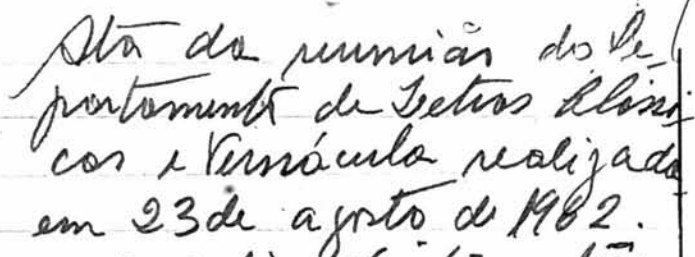 Ata da reunião do De-
partamento de Letras Clássi-
cas e Vernácula realizada
em 23 de agosto de 1982.